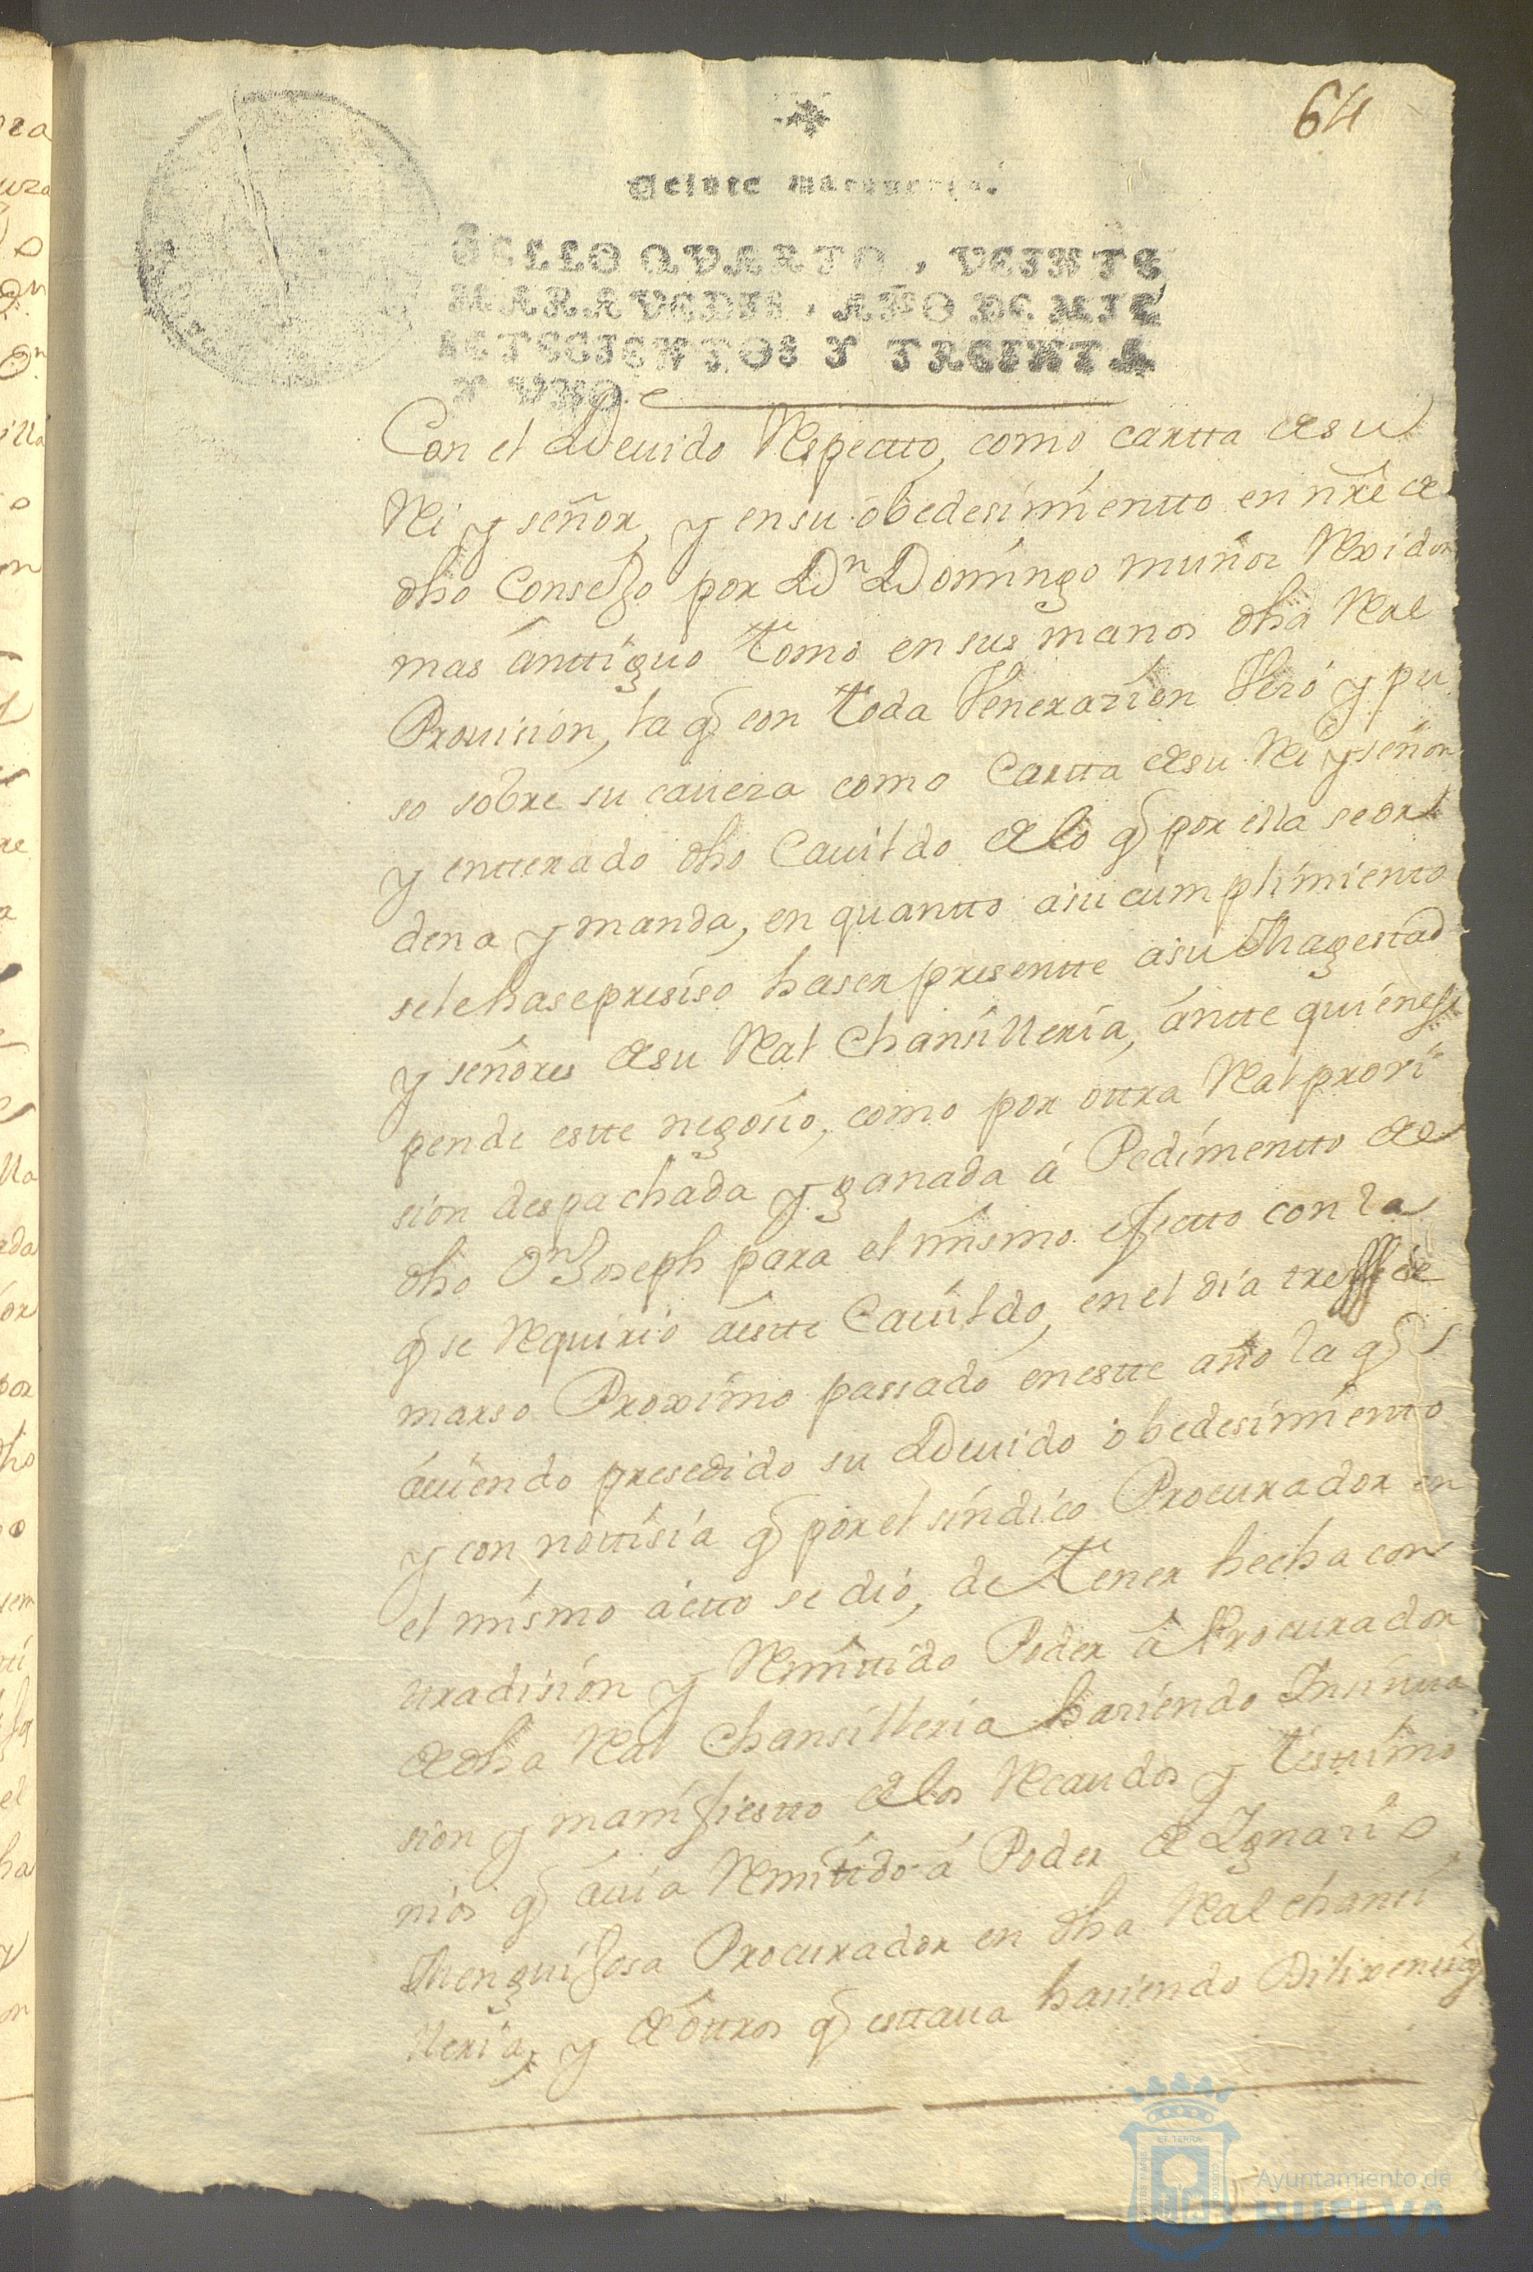 64
Veinte maravedis.
SELLO QVARTO, VEINTE
MARAVEDIS, AÑO DE MIL
SETECIENTOS Y TREINTA
Y VNO.
Con el Deuido Respectto, como cartta de su
Rei y señor, y en su obedesimientto en nr̃e de
dho Consejo por Dn Domingo muñoz Rexidor
mas anttiguo tomo en sus manos dha Real
Prouision, la q̃ con toda Venerazion Vezó y pu
so sobre su caueza como Cartta de su Rei y señor
y entterado dho Cauildo de lo q̃ por ella se or
dena y manda, en quantto a su cumplimiento
se le hase presiso haser presentte a su Magestad
y señores de su Real Chansilleria, antte quienes
pende estte negosio, como por ottra Real provi
sion despachada y ganada á Pedimentto de
dho Dn Joseph para el mismo efectto con la
q̃ se Requirio a estte Cauildo, en el dia tres de
marso Proximo passado en estte año la q̃
auiendo presedido su Deuido obedesimientto
y con nottisia q̃ por el sindico Procurador en
el mismo actto se dió, de tener hecha con
tradision y Remittido Poder á Procurador
de dha Real Chansilleria haziendo Insinua
sion y manifiestto de los Recaudos y testtimo
nios q̃ auia Remitido á Poder de Ignazio
Mengujosa Procurador en dha Real chansi
lleria, y de ottros q̃ esttaua haziendo Dilixensias
Ayuntamiento de
HUELVA